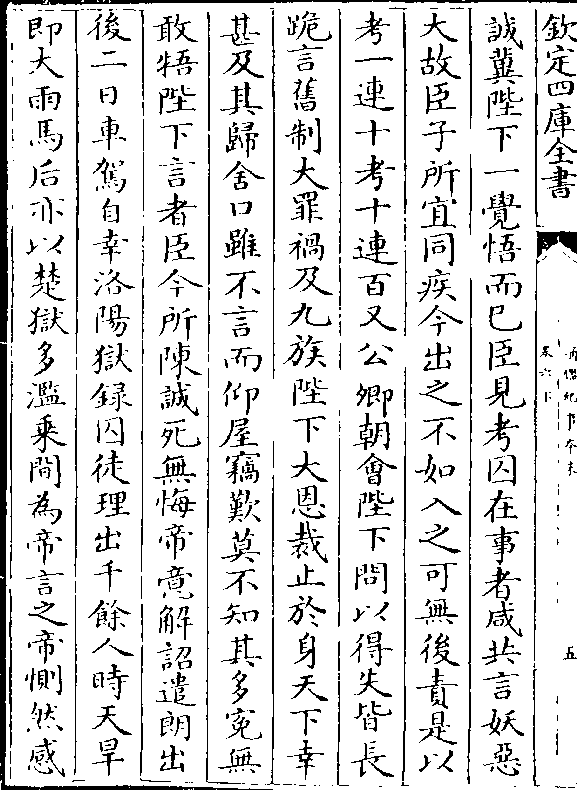 欽定四庫全書
通鑑紀事本末
卷六下
五
誠冀陛下一覺悟而已臣見考囚在事者咸共言妖惡
大故臣子所宜同疾今出之不如入之可無後責是以
考一連十考十連百又公卿朝會陛下問以得失皆長
跪言舊制大罪禍及九族陛下大恩裁止於身天下幸
甚及其歸舍口雖不言而仰屋竊歎莫不知其多寃無
敢牾陛下言者臣今所陳誠死無悔帝意解詔遣朗出
後二日車駕自幸洛陽獄録囚徒理出千餘人時天旱
即大雨馬后亦以楚獄多濫乗間為帝言之帝惻然感